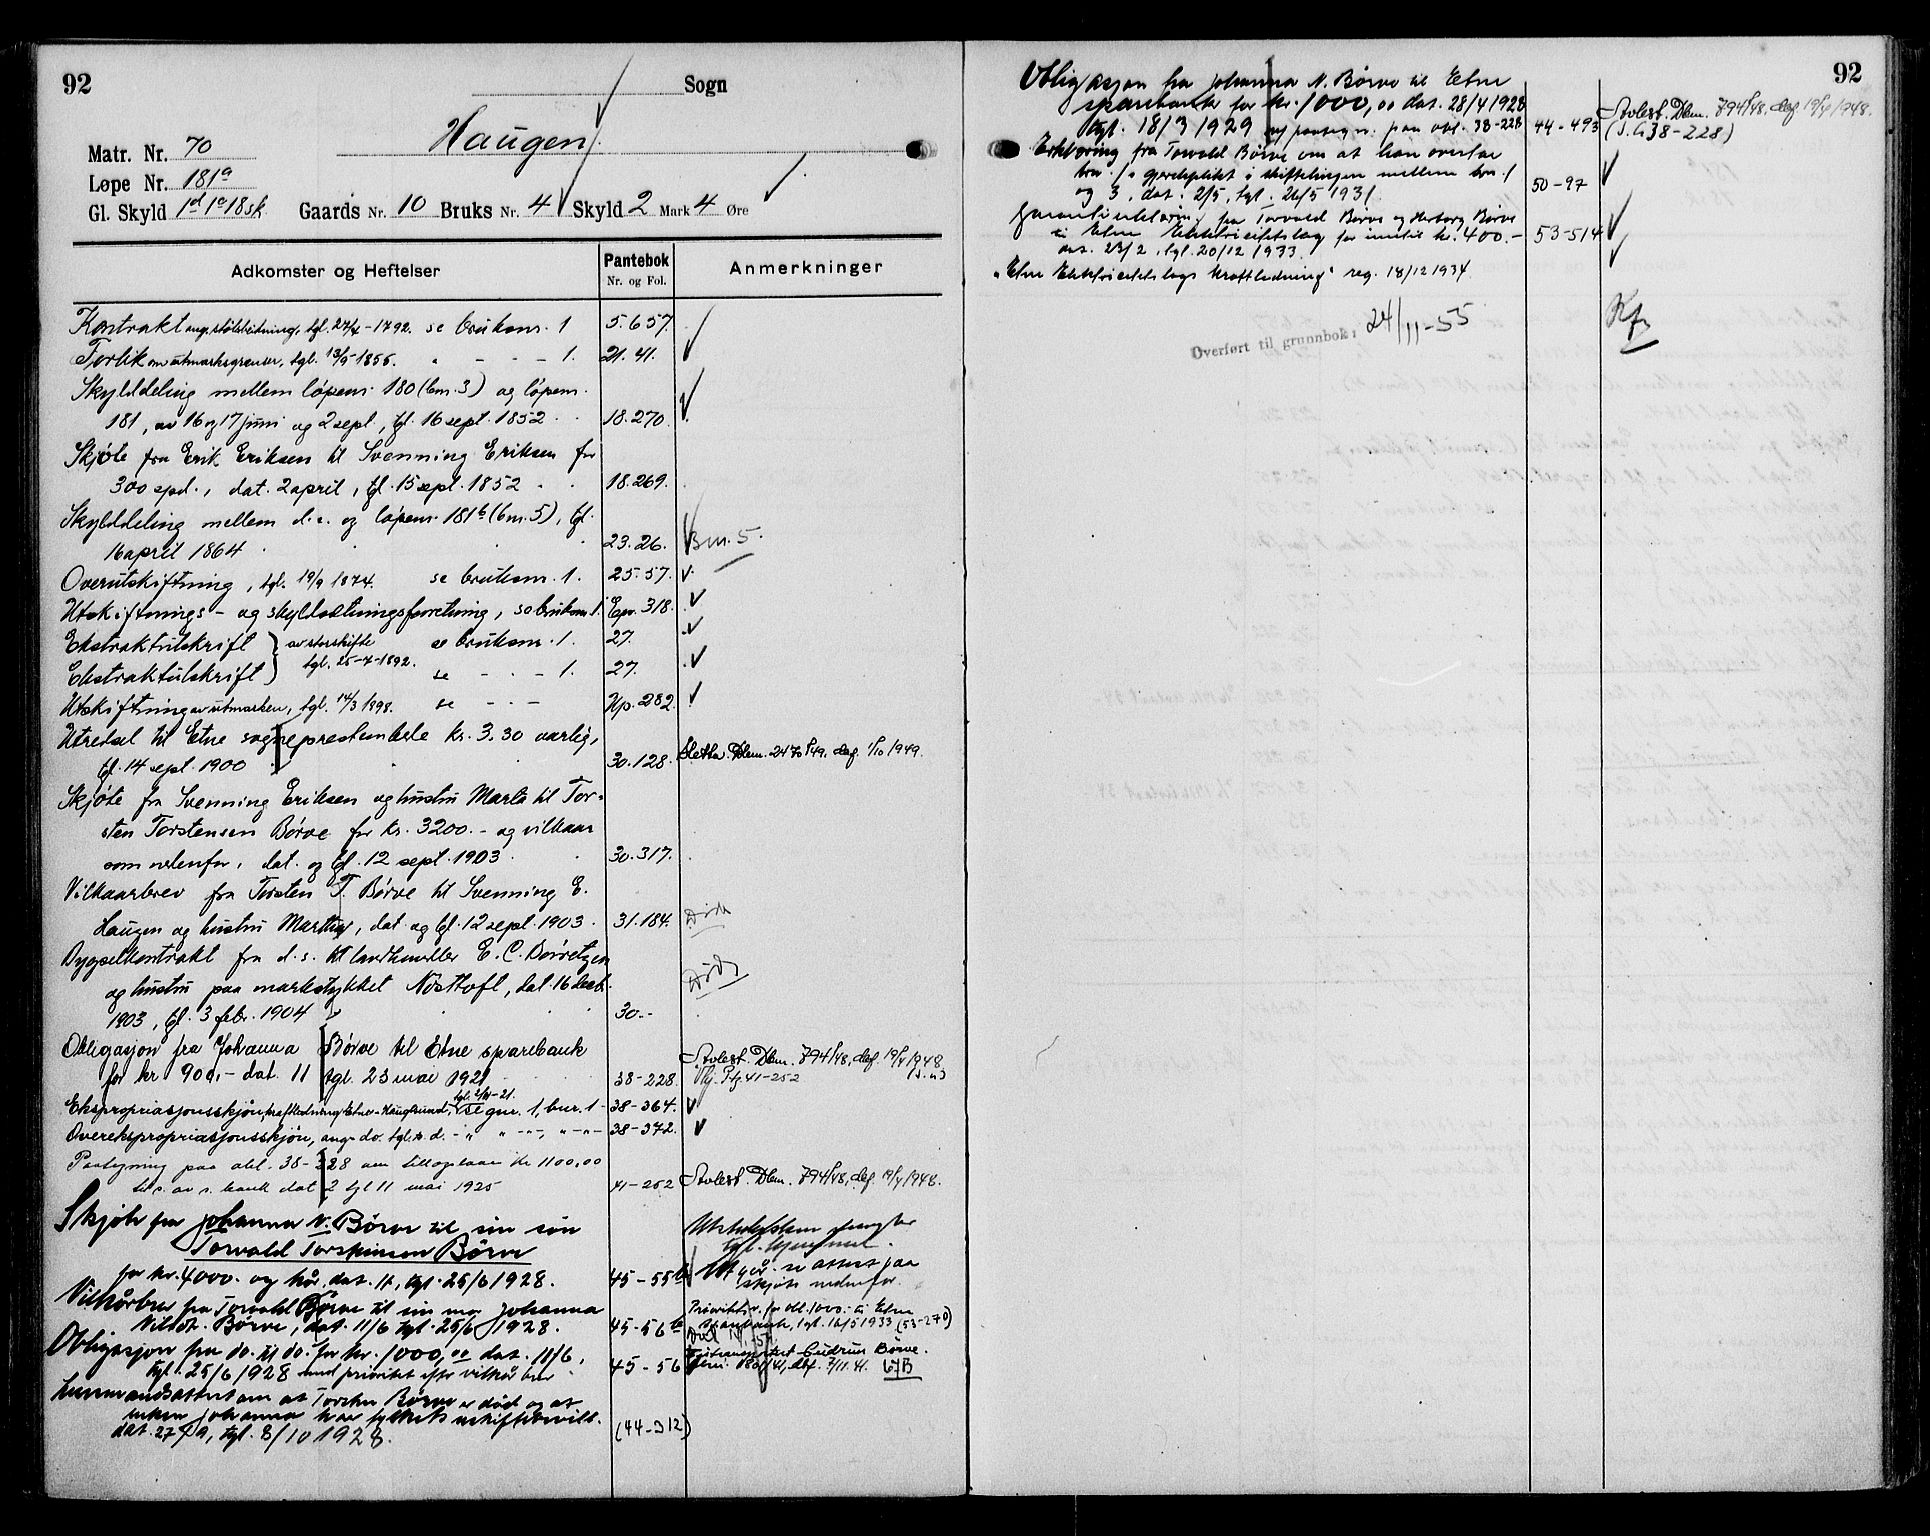 92
Sogn
Haugen
Matr. Nr. 70
Løpe Nr. 181a
Gl. Skyld 1d 1o 18sk. Gaards Nr. 10 Bruks Nr. 4 Skyld 2 Mark 4 Øre
Adkomster og Heftelser Pantebok Nr. og Fol. Anmerkninger
Kontrakt ang. støls tgl. 27/4-1792. se bruksnr. 1 5.657.
Forlik om utmarksgrenser, tgl. 13/5-1856. " - - - 1. 21.41.
Skylddeling mellem løpenr. 180 (bnr. 3) og løpenr.
181, av 16 og 17 juni og 2 sept, tgl. 16 sept. 1852 18.270.
Skjøte fra Erik Eriksen til Svenning Eriksen for
300 spd., dat. 2 april, tgl. 15 sept. 1852 18.269.
Skylddeling mellem d.s. og løpenr. 181b (bnr. 5), tgl.
16 april 1864 23.26. Bnr. 5.
Overutskiftning, tgl. 19/9 1874. se bruksnr. 1. 25.57.
Utskiftnings- og skyldsætningsforretning, se bruksnr. 1. Epr. 318.
Ekstraktutskrift } av storskifte se bruksnr. 1. 27.
Ekstraktutskrift } tgl. 25-4-1892. se - - - 1. 27.
Utskiftning av utmarken, tgl. 14/3 1898. se - - - Up. 282.
Utredsel til Etne sogneprestembede kr. 3.30 aarlig,
tgl. 14 sept. 1900 30.128. Slettet. Dbnr. 2470/49, dag. 1/10 1949.
Skjøte fra Svenning Eriksen og hustru Marta til Tor-
sten Torstensen Børve for kr. 3200.- og vilkaar
som nedenfor, dat. og tgl. 12 sept. 1903. 30.317.
Vilkaarbrev fra Torsten T. Børve til Svenning E.
Haugen og hustru Martha, dat og tgl. 12 sept. 1903. 31.184. Død
Bygselkontrakt fra d.s. til landhandler E. C. Børretzen
og hustru paa markstykket Nøsttoft, dat. 16 decb.
1903, tgl. 3 febr. 1904 30.- Død
Obligasjon fra Johanna Børve til Etne sparebank
for kr 900,- dat. 11 tgl. 23 mai 1921 38-228. Avlest. Dbnr. 794/48, dag. 19/4 1948.
Vly. Ptg. 41-252
Ekspropriasjonsskjøn, kraftledning Etne-Haugesund, se gnr. 1, bnr. 1- 38-364.
Overekspropriasjonsskjøn, ang. do. tgl. s. d. - " " - - , " - - 38-372.
Paategning paa obl. 38-228 om tillægslaan kr 1100,00
til s. av s. bank dat 2 tgl 11 mai 1925 41-252 Avlest. Dbnr. 794/48, dag. 19/4 1948.
Skjøte fra Johanna N. Børve til sin søn
Torvald Torstensen Børve
for kr. 4000. og kår, dat. 11, tgl. 25/6 1928. 45-55
Utgår. se attest paa
skjøte nedenfor.
Vilkårbrev fra Torvald Børve til sin mor Johanna
Nilsdt. Børve, dat. 11/6 tgl. 25/6 1928. 45-56 Prioritetsv. for obl. 1000.- til Etne
sparebank, tgl. 16/5 1933 (53-270)
Obligasjon fra do. til do. for kr. 1000,00 dat. 11/6,
tgl. 25/6 1928 med prioritet efter vilkårbrev 45-56 Gudrun Børve.
Lensmandsattest om at Torsten Børve er død og at
enken Johanna har uskiftebevill.
dat. 27/9, tgl. 8/10 1928. (44-312)
92
Obligasjon fra Johanna N. Børve til Etne
sparebank for kr. 1000,00 dat. 28/4 1928
tgl. 18/3 1929 m/ paategn. paa obl. 38-228 44-493 Avlest. Dbnr. 794/48, dag. 19/4 1948.
(38-228)
Erklæring fra Torvald Børve om at han overtar
bnr. 1's gjerdeplikt i skiftelinjen mellem bnr. 1
og 3, dat. 2/5, tgl. 26/5 1931. 50-97
Garantierklæring fra Torvald Børve og Herborg Børve
til Etne Elektricitetslag for inntil kr. 400.- 53-514
dat. 23/2, tgl. 20/12 1933.
"Etne Elektricitetslags kraftledning" reg. 18/12 1934
Overført til grunnbok: 24/11-55